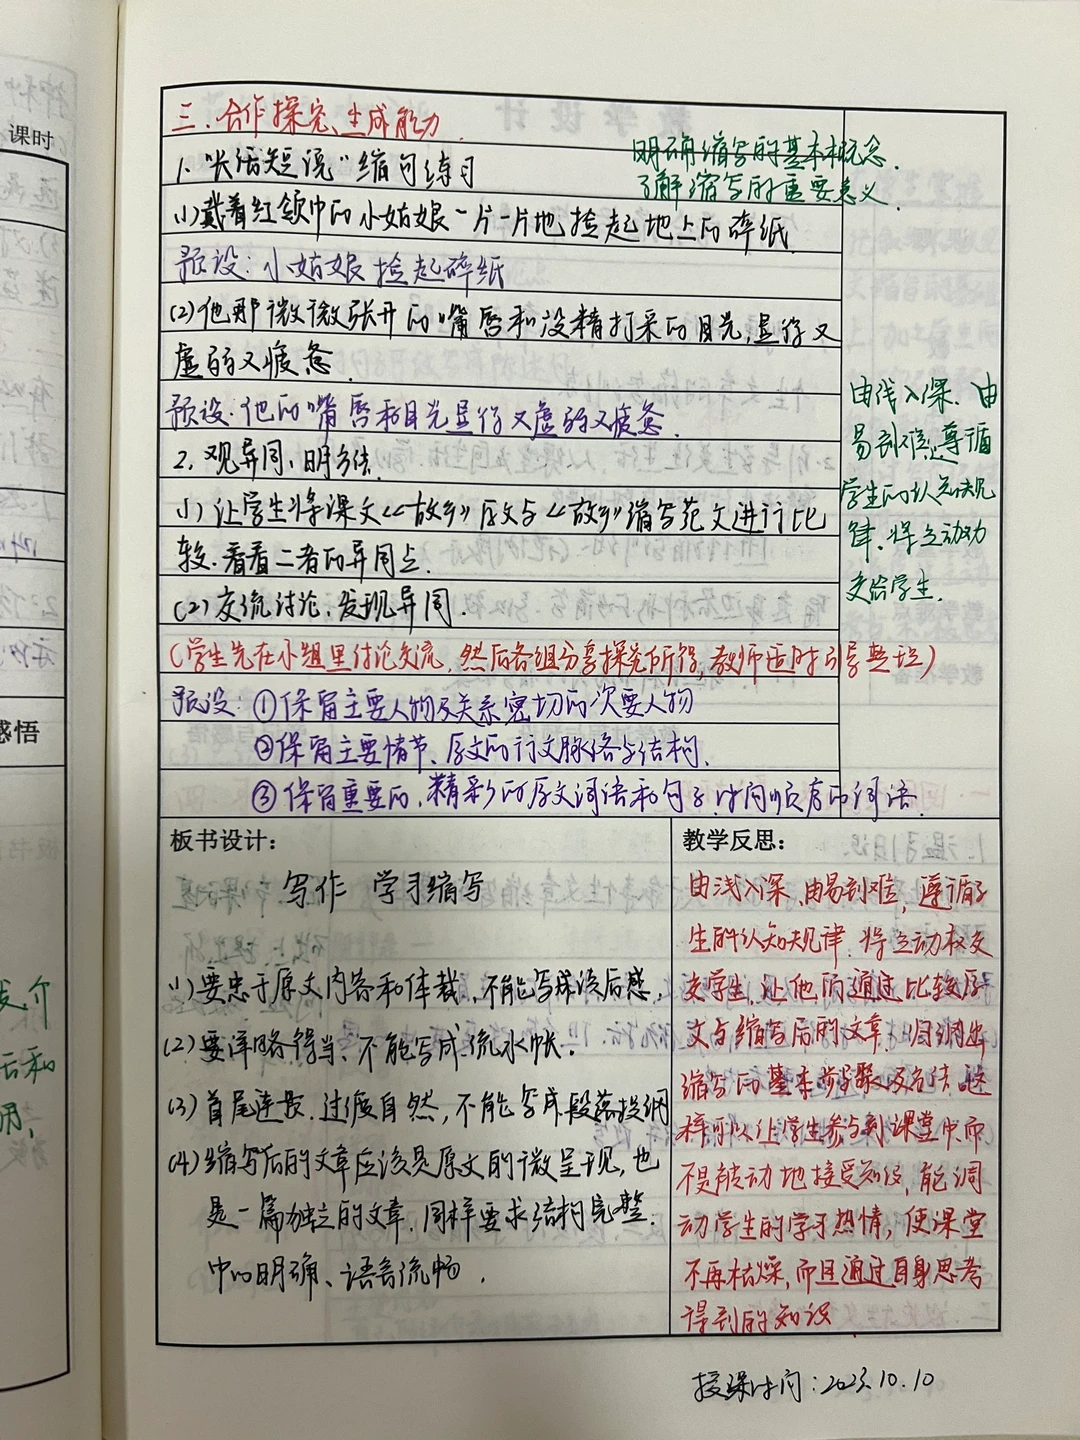 课时
感悟
三、合作探究、生成能力
明确缩写的基本概念、
了解缩写的重要意义
1."长话短说"缩句练习
(1)戴着红领巾的小姑娘一片一片地捡起地上的碎纸
预设:小姑娘捡起碎纸
(2)他那微微张开的嘴唇和没精打采的目光,显得又
虚弱又疲惫
预设:他的嘴唇和目光显得又虚弱又疲惫.
2.观异同,明方法.
(1)让学生将课文《故乡》原文与《故乡》缩写范文进行比
较.看看二者的异同点.
(2)交流讨论,发现异同.
(学生先在小组里讨论交流,然后各组分享探究所得,教师适时引导点拨)
预设:①保留主要人物及关系密切的次要人物
②保留主要情节、原文的行文脉络与结构.
③保留重要的、精彩的原文词语和句子,时间顺序的词语.
由浅入深、由
易到难,遵循
学生的认知规
律,将主动权
交给学生.
板书设计:
写作 学习缩写
(1)要忠于原文内容和体裁,不能写成读后感,
(2)要详略得当、不能写成流水帐.
(3)首尾连贯.过渡自然,不能写成段落提纲
(4)缩写后的文章应该是原文的微呈现,也
是一篇独立的文章.同样要求结构完整.
中心明确、语言流畅.
教学反思:
由浅入深、由易到难,遵循学
生的认知规律.将主动权交
交学生,让他们通过比较原
文与缩写后的文章,归纳出
缩写的基本步骤及方法.这
样可以让学生参与到课堂中.而
不是被动地接受知识,能调
动学生的学习热情,使课堂
不再枯燥,而且通过自身思考
得到的知识
授课时间:2023.10.10